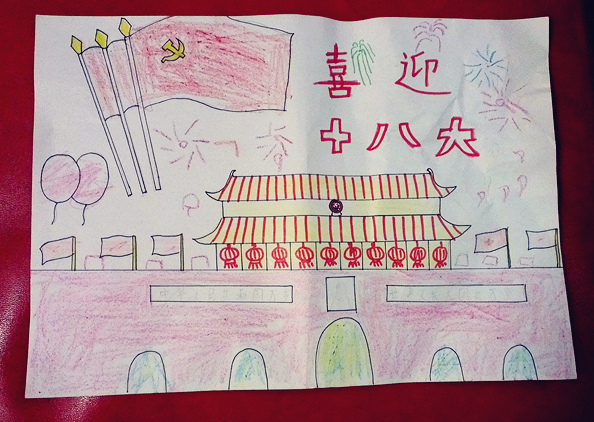 喜迎
十八大